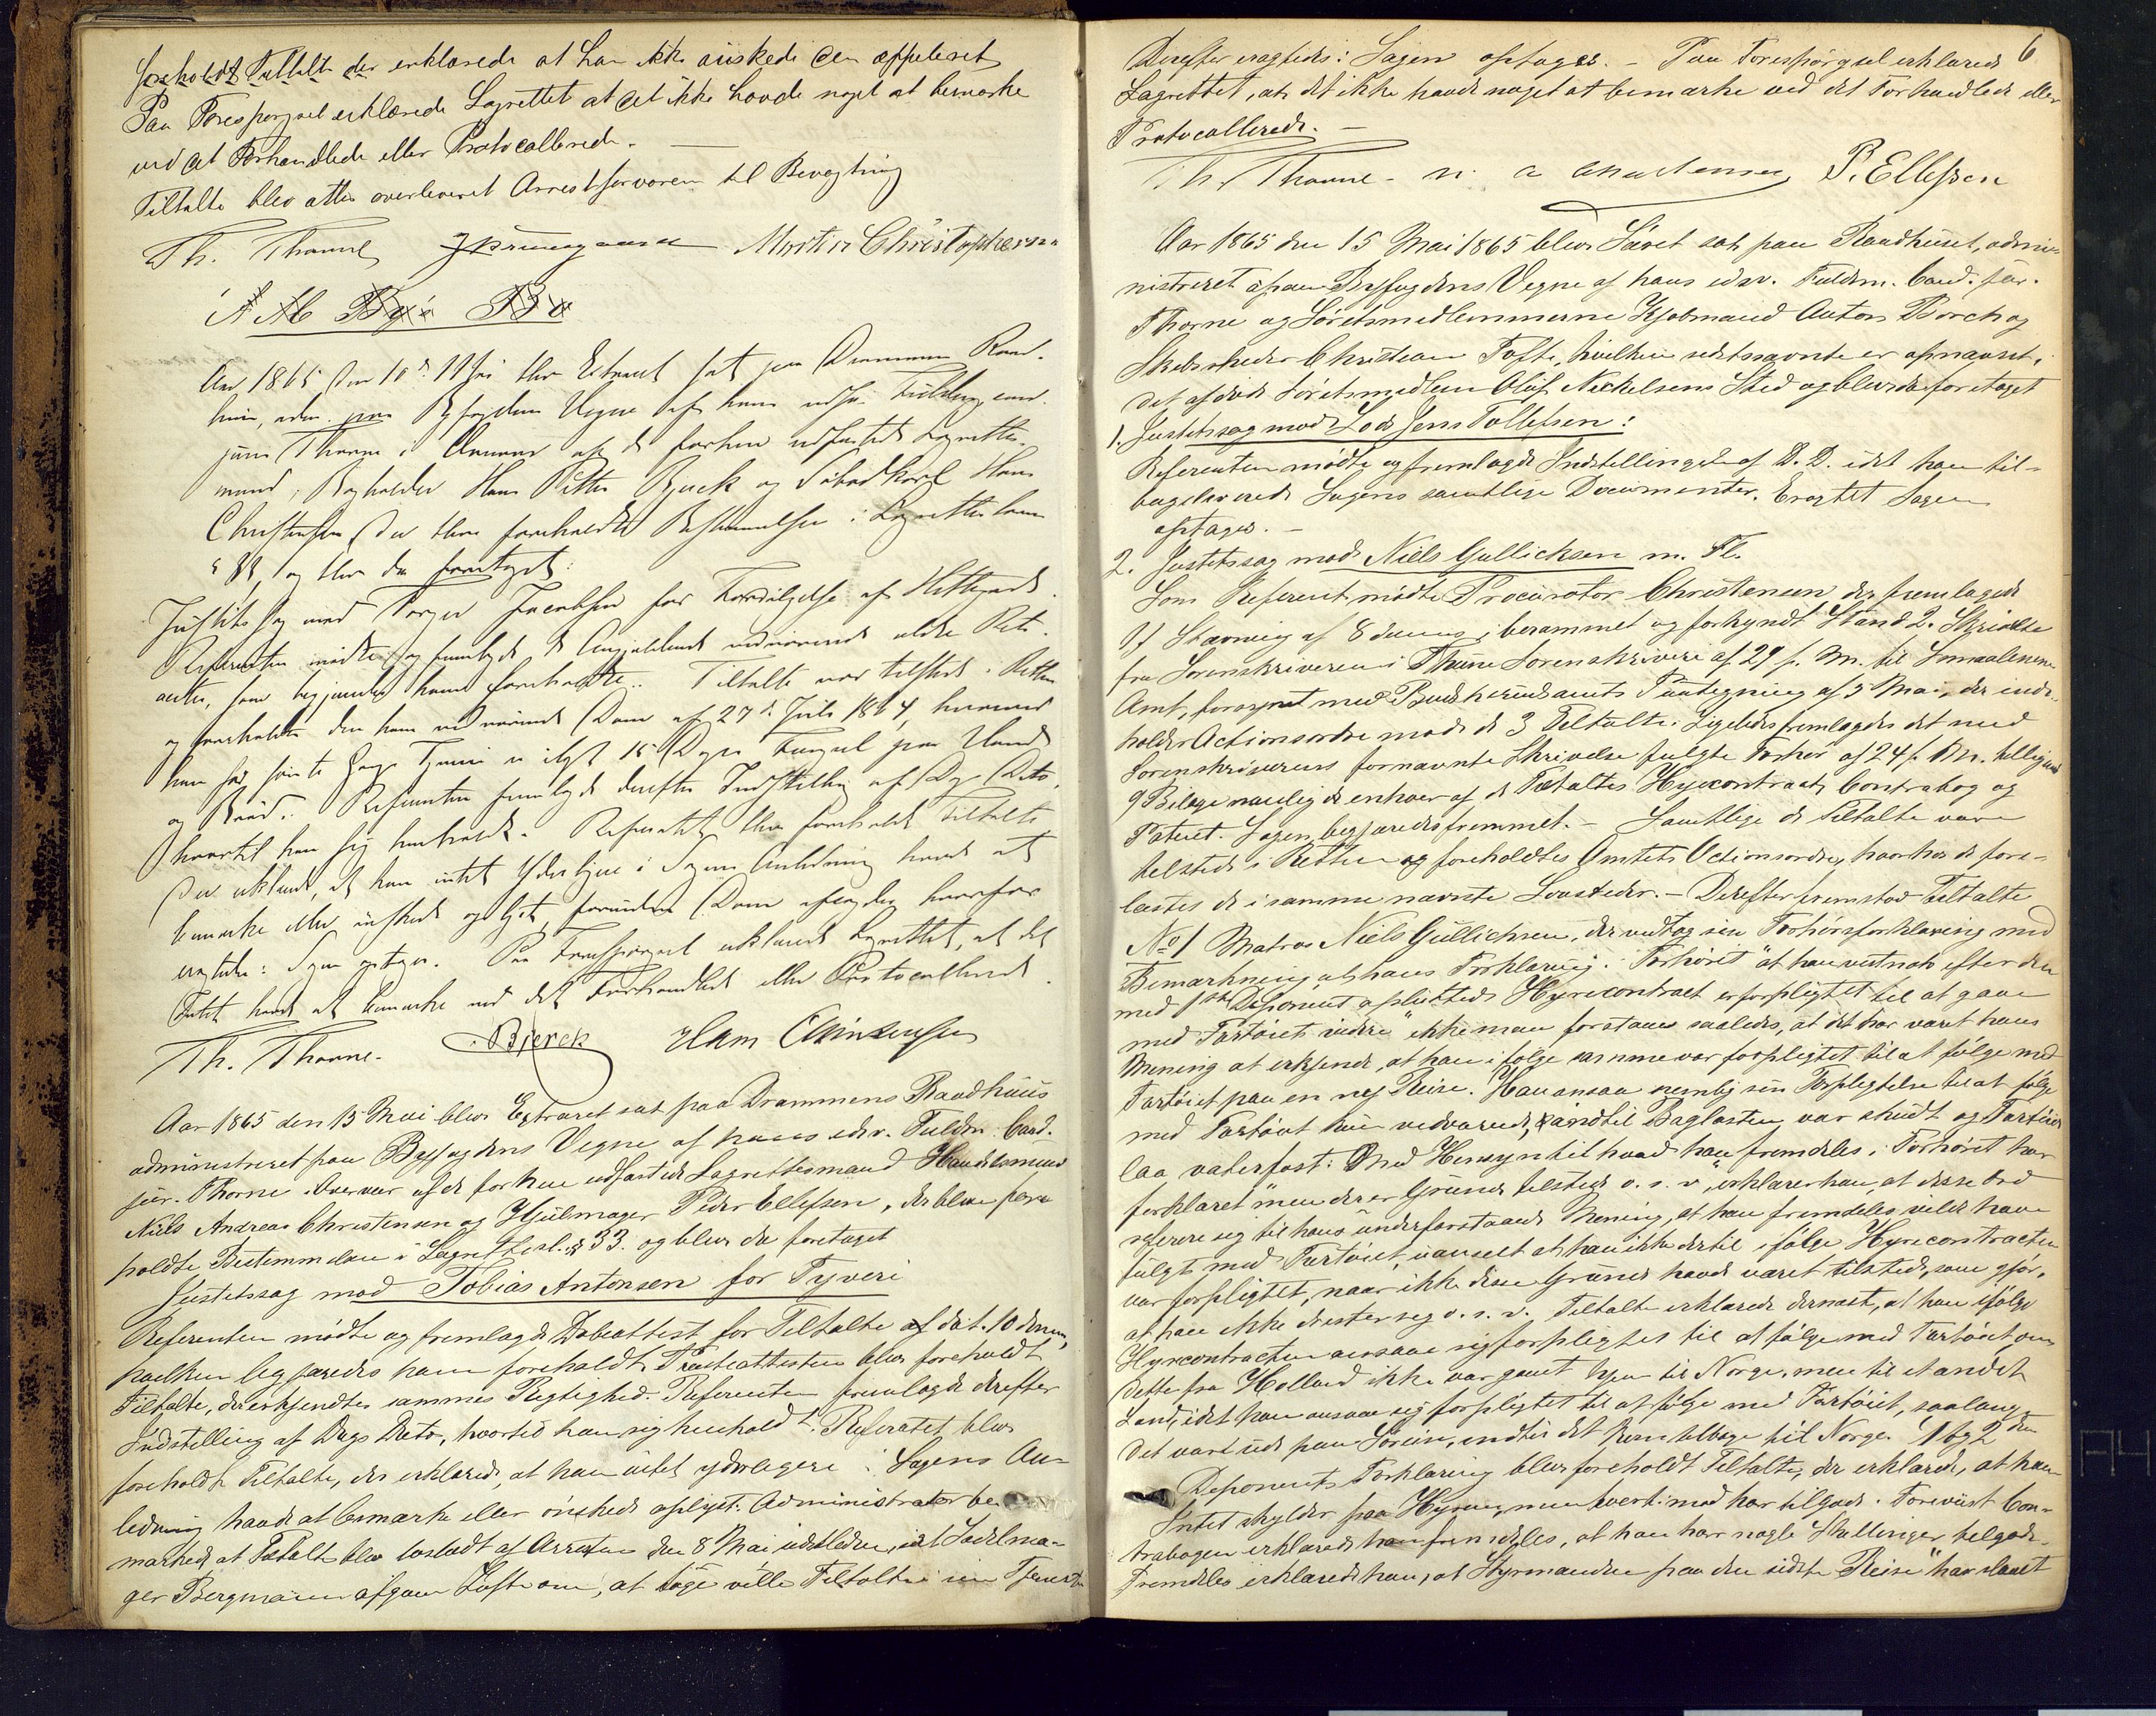 foreholdt Tiltalte der erklærede at han ikke ønskede den appelleret
Paa Forespørgsel erklærede Lagrettet at det ikke havde noget at bemærke
ved det Forhandlede eller Protocollerede.
Tiltalte blev atter overleveret Arrestforvareren til Bevogtning
Th. Thorne Martin Christophersen
Aar 1865 den 10de Mai blev Extraret sat paa Drammens Raad-
huus, adm. paa Byfogdens Vegne af hans edsv. Fuldm. cand.
juris Thorne i Overvær af de forhen udfæstede Lagrettes-
mænd, Bogholder Hans Petter Bjerck og Hans
Christensen, der blev foreholdte Bestemmelsen i Lagrettesloven
§ 33, og blev da foretaget:
Justitssag mod Torger Jacobsen for Fordølgelse af Hittegods.
Referenten mødte og fremlagde de Angjældende vedrørende ældre Rets-
acter, som begjæredes ham foreholdte. Tiltalte var tilstede i Retten
og foreholdtes den ham vedrørende Dom af 27de Juli 1864, hvorved
han for første Gang Tyveri er ilagt 15 Dages Fængsel paa Vand
og Brød. Referenten fremlagde derefter Indstilling af Dags Dato,
hvortil han sig henholdt. Referatet blev foreholdt Tiltalte
der erklærede, at han intet Yderligere i Sagens Anledning havde at
bemærke eller ønskede oplyst, forinden Dom afsagdes, hvorfor
eragtedes: Sagen optages. Paa Forespørgsel erklærede Lagrettet, at det
Intet havde at bemærke ved det Forhandlede eller Protocollerede.
Th. Thorne. Bjerck Hans Christensen
Aar 1865 den 15 Mai blev Extraret sat paa Drammens Raadhuus
administreret paa Byfogdens Vegne af hans edsv. Fuldm. Cand.
jur. Thorne i Overvær af de forhen udfæstede Lagrettesmænd Handelsmand
Niels Andreas Christensen og Hjulmager Peder Ellefsen, der blev fore
holdte Bestemmelsen i Lagrettesl. § 33. og blev da foretaget
Justitssag mod Tobias Antonsen for Tyveri
Referenten mødte og fremlagde Dobeattest for Tiltalte af dat. 10 dennes,
hvilken begjæredes ham foreholdt. Præsteattesten blev foreholdt
Tiltalte, der erkjendte sammes Rigtighed. Referenten fremlagde derefter
Indstilling af Dags Dato, hvortil han sig henholdt. Referatet blev
foreholdt Tiltalte, der erklærede, at han intet yderligere i Sagens An-
ledning havde at bemærke eller ønskede oplyst. Administrator be
mærkede at Tiltalte blev løsladt af Arresten den 8 Mai sidstleden, idet Sadelma-
ger Bergmann afgav Løfte om, at tage ville Tiltalte i sin Tjeneste
6
Derefter eragtedes: Sagen optages. - Paa Forespørgsel erklærede
Lagrettet, at det ikke havde noget at bemærke ved det Forhandlede eller
Protocollerede. -
Th. Thorne - P. Ellefsen
Aar 1865 den 15 Mai 1865 blev Søret sat paa Raadhuset, admi-
nistreret paa Byfogdens Vegne af hans edsv. Fuldm. Cand. jur.
Thorne og Søretsmedlemmerne Kjøbmand Anton Borch og
Skibsrheder Christian Tofte, hvilken sidstnævnte er opnævnt i
det afdøde Søretsmedlem Olaf Nickelsens Sted og blev da foretaget
1. Justitssag mod Lods Jens Tollefsen:
Referenten mødte og fremlagde Indstillinger af D. D. idet han til-
bageleverede Sagens samtlige Documenter. Eragtet Sagen
optages. -
2. Justitssag mod Niels Gullichsen m. Fl.
Som Referent mødte Procurator Christensen der fremlagde
1) Stævning af 8 dennes, berammet og forkyndt Stand 2. Skrivelse
fra Sorenskriveren i Thune Sorenskriveri af 29 f. M. til Smaalenenes
Amt, forsynet med Buskeruds Amts Paategning af 5 Mai, der inde-
holder Actionsordre mod de 3 Tiltalte. Ligeledes fremlagdes det med
Sorenskriverens fornævnte Skrivelse fulgte Forhør af 24 f. M. tilligemed
9 Bilage nemlig de enhver af de Tiltaltes Hyrecontract, Contrabog og
Patent. Sagen begjæredes fremmet. - Samtlige de Tiltalte vare
tilstede i Retten og foreholdtes Amtets Actionsordre, hvorhos de fore-
læstes de i samme nævnte Lovsteder. - Derefter fremstod Tiltalte
No 1 Matros Niels Gullichsen, der vedtog sin Forhørsforklaring med
Bemærkning, at hans Forklaring i Forhøret "at han vistnok efter den
med 1ste Deponent afsluttede Hyrecontract er forpligtet til at gaae
med Fartøiet videre" ikke maa forstaaes saaledes, at det har været hans
Mening at erkjende, at han ifølge samme var forpligtet til at følge med
Fartøiet paa en ny Reise. Han ansaa nemlig sin Forpligtelse til at følge
med Fartøiet kun vedvarende, indtil Baglasten var skudt og Fartøiet
laa vaterfast. Med Hensyn til hvad han fremdeles i Forhøret har
forklaret "men der er Grunde tilstede o. s. v", erklærer han, at disse Ord
referere sig til hans underforstaaede Mening, at han fremdeles vilde have
fulgt med Fartøiet, uanseet at han ikke dertil ifølge Hyrecontracten
var forpligtet, naar ikke disse Grunde havde været tilstede, som gjør,
at han ikke drister sig o. s. v. Tiltalte erklærede dernæst, at han ifølge
Hyrecontracten ansaae sig forpligtet til at følge med Fartøiet, om
dette fra Holland ikke var gaaet hjem til Norge, men til et andet
Land, idet han ansaae sig forpligtet til at følge med Fartøiet, saalænge
det var ude paa Søreise, indtil det kom tilbage til Norge. 1 og 2den
Deponents Forklaring blev foreholdt Tiltalte, der erklærede, at han
Intet skylder paa Hyren, men tvertimod har tilgode. Foreviist Con-
trabogen erklærede han fremdeles, at han har nogle Skillinger tilgode.
Fremdeles erklærede han, at Styrmanden paa den sidste Reise "har slaaet